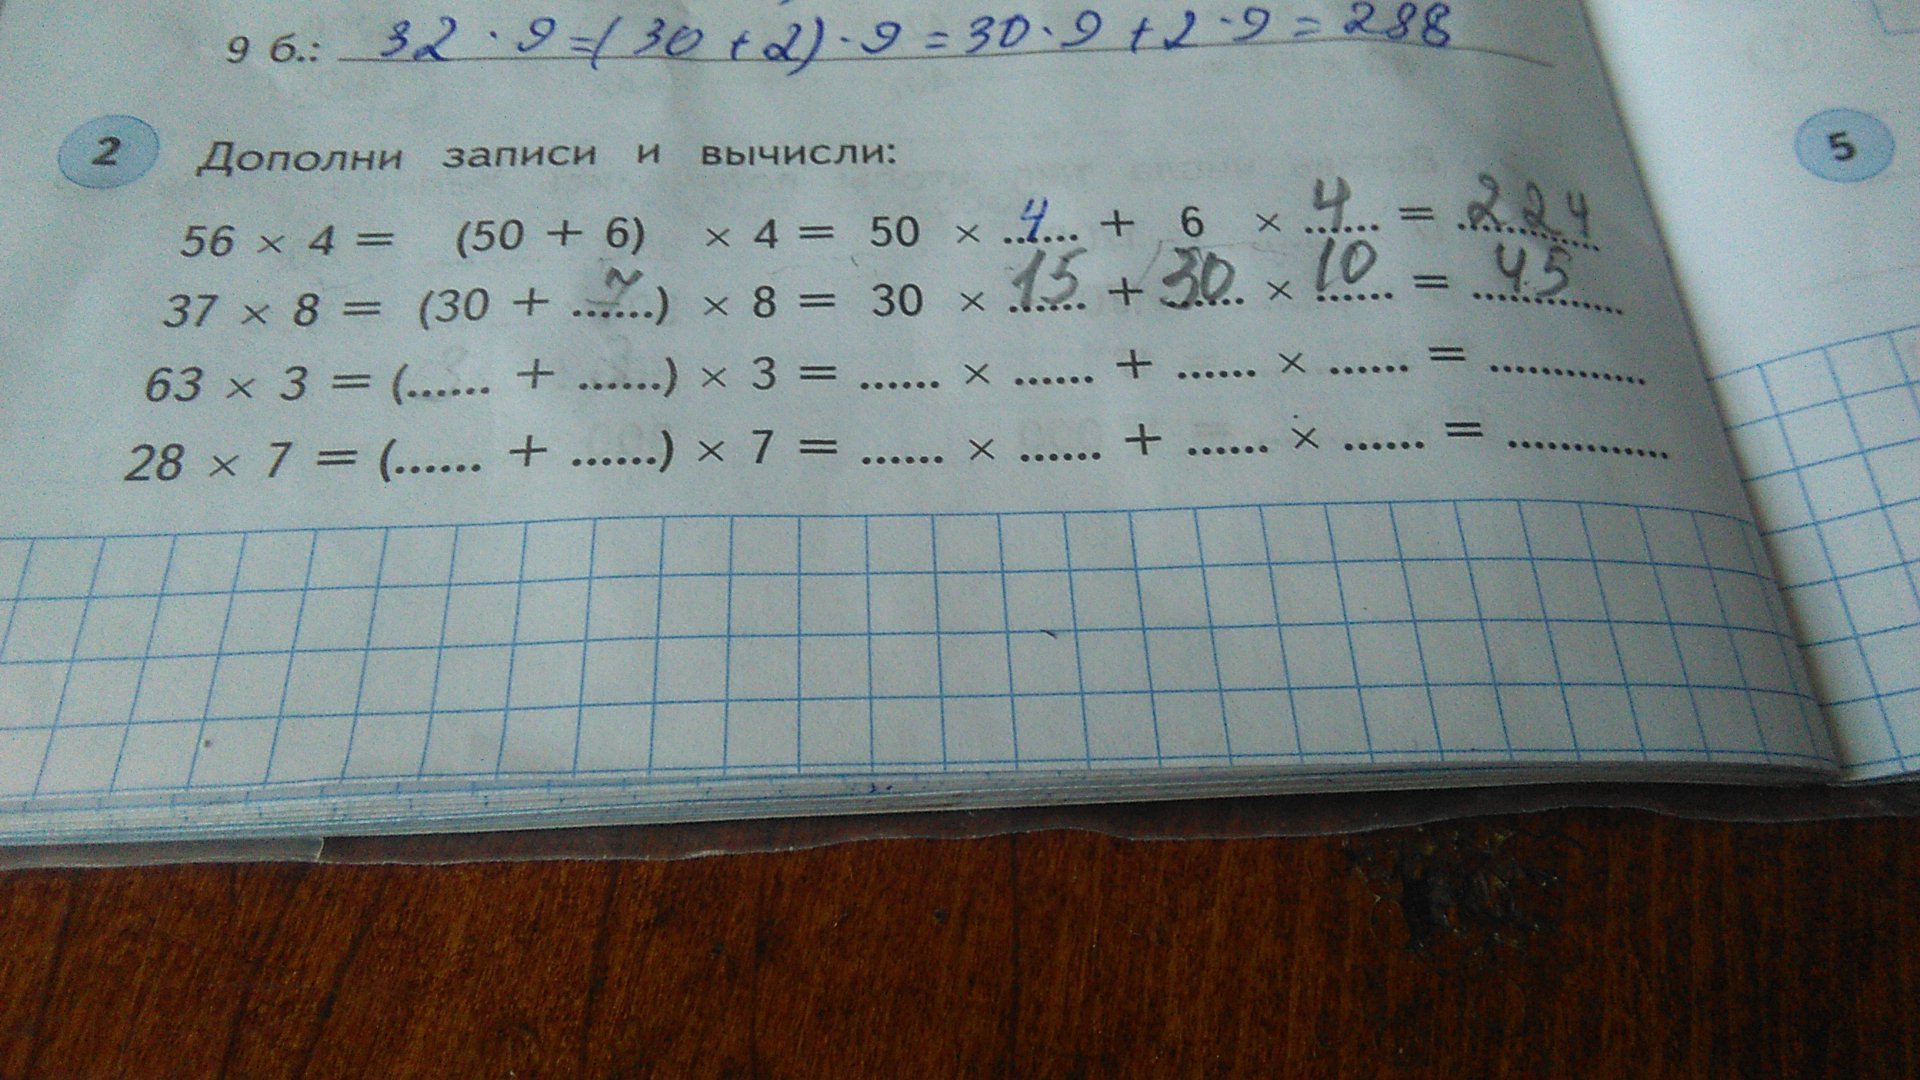 9 б.: 32 · 9 = (30 + 2) · 9 = 30 · 9 + 2 · 9 = 288
2 Дополни записи и вычисли:
56 × 4 = (50 + 6) × 4 = 50 × 4 + 6 × 4 = 224
37 × 8 = (30 + 7) × 8 = 30 × 15 + 30 × 10 = 45
63 × 3 = (...... + ......) × 3 = ...... × ...... + ...... × ...... = ............
28 × 7 = (...... + ......) × 7 = ...... × ...... + ...... × ...... = ............
5